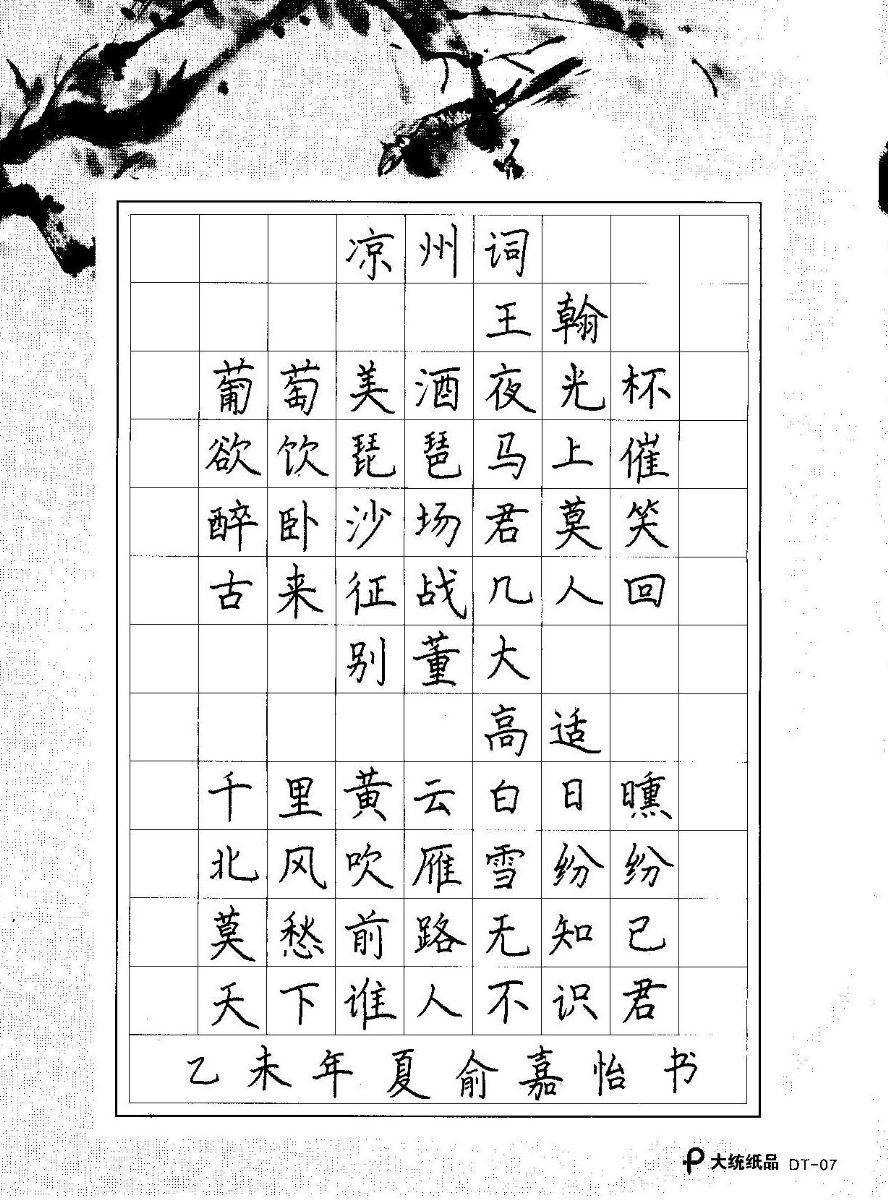 凉州词
王翰
葡萄美酒夜光杯
欲饮琵琶马上催
醉卧沙场君莫笑
古来征战几人回
别董大
高适
千里黄云白日曛
北风吹雁雪纷纷
莫愁前路无知己
天下谁人不识君
乙未年夏俞嘉怡书
大统纸品 DT-07